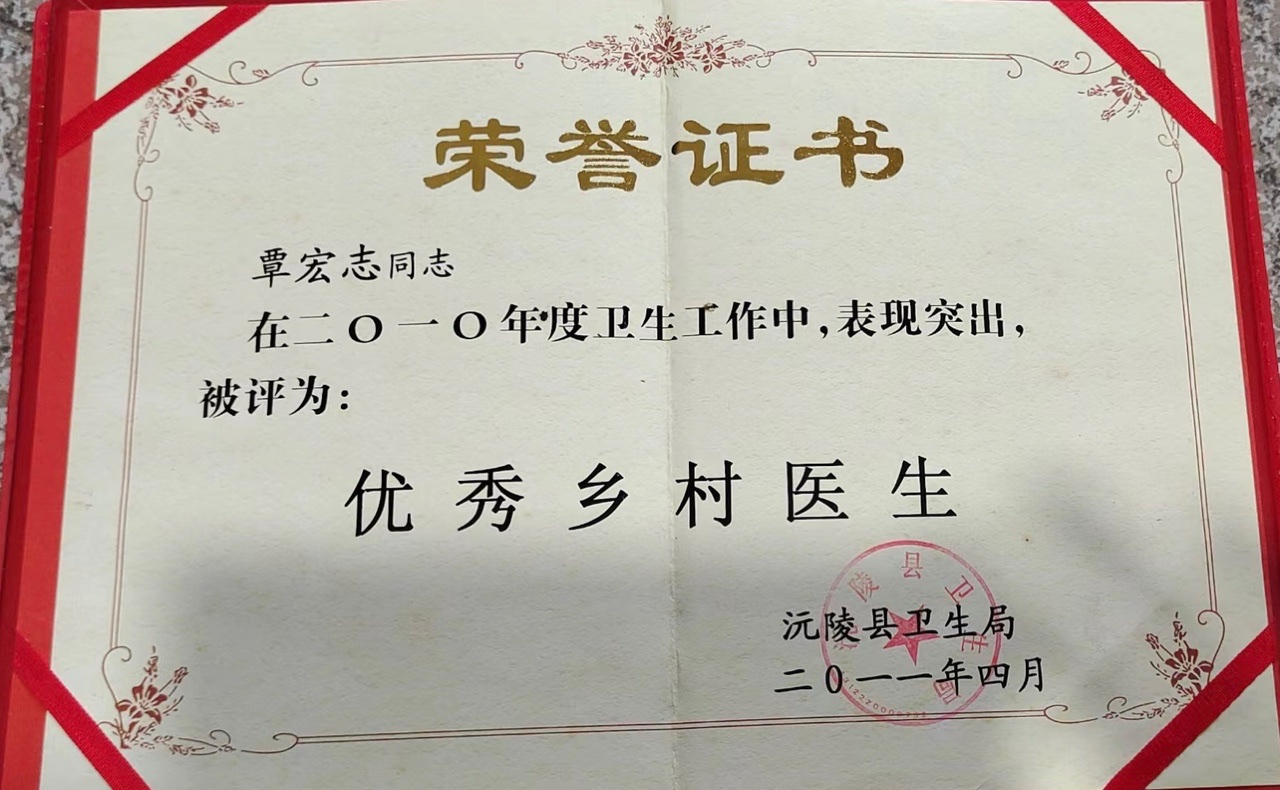 荣誉证书
覃宏志同志
在二〇一〇年度卫生工作中,表现突出,
被评为:
优秀乡村医生
沅陵县卫生局
二〇一一年四月
沅陵县卫生局